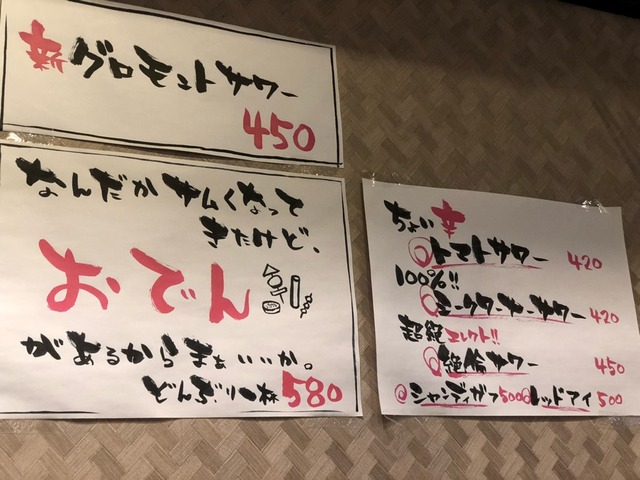 新グロモントサワー
450
なんだかサムくなって
きたけど、
おでん
があるからまぁいいか。
どんぶり一杯580
ちょい辛
◎トマトサワー 420
100%!!
◎ヨークターナーサワー 420
超絶エレクト!!
◎絶倫サワー 450
◎シャンディガフ500◎レッドアイ 500